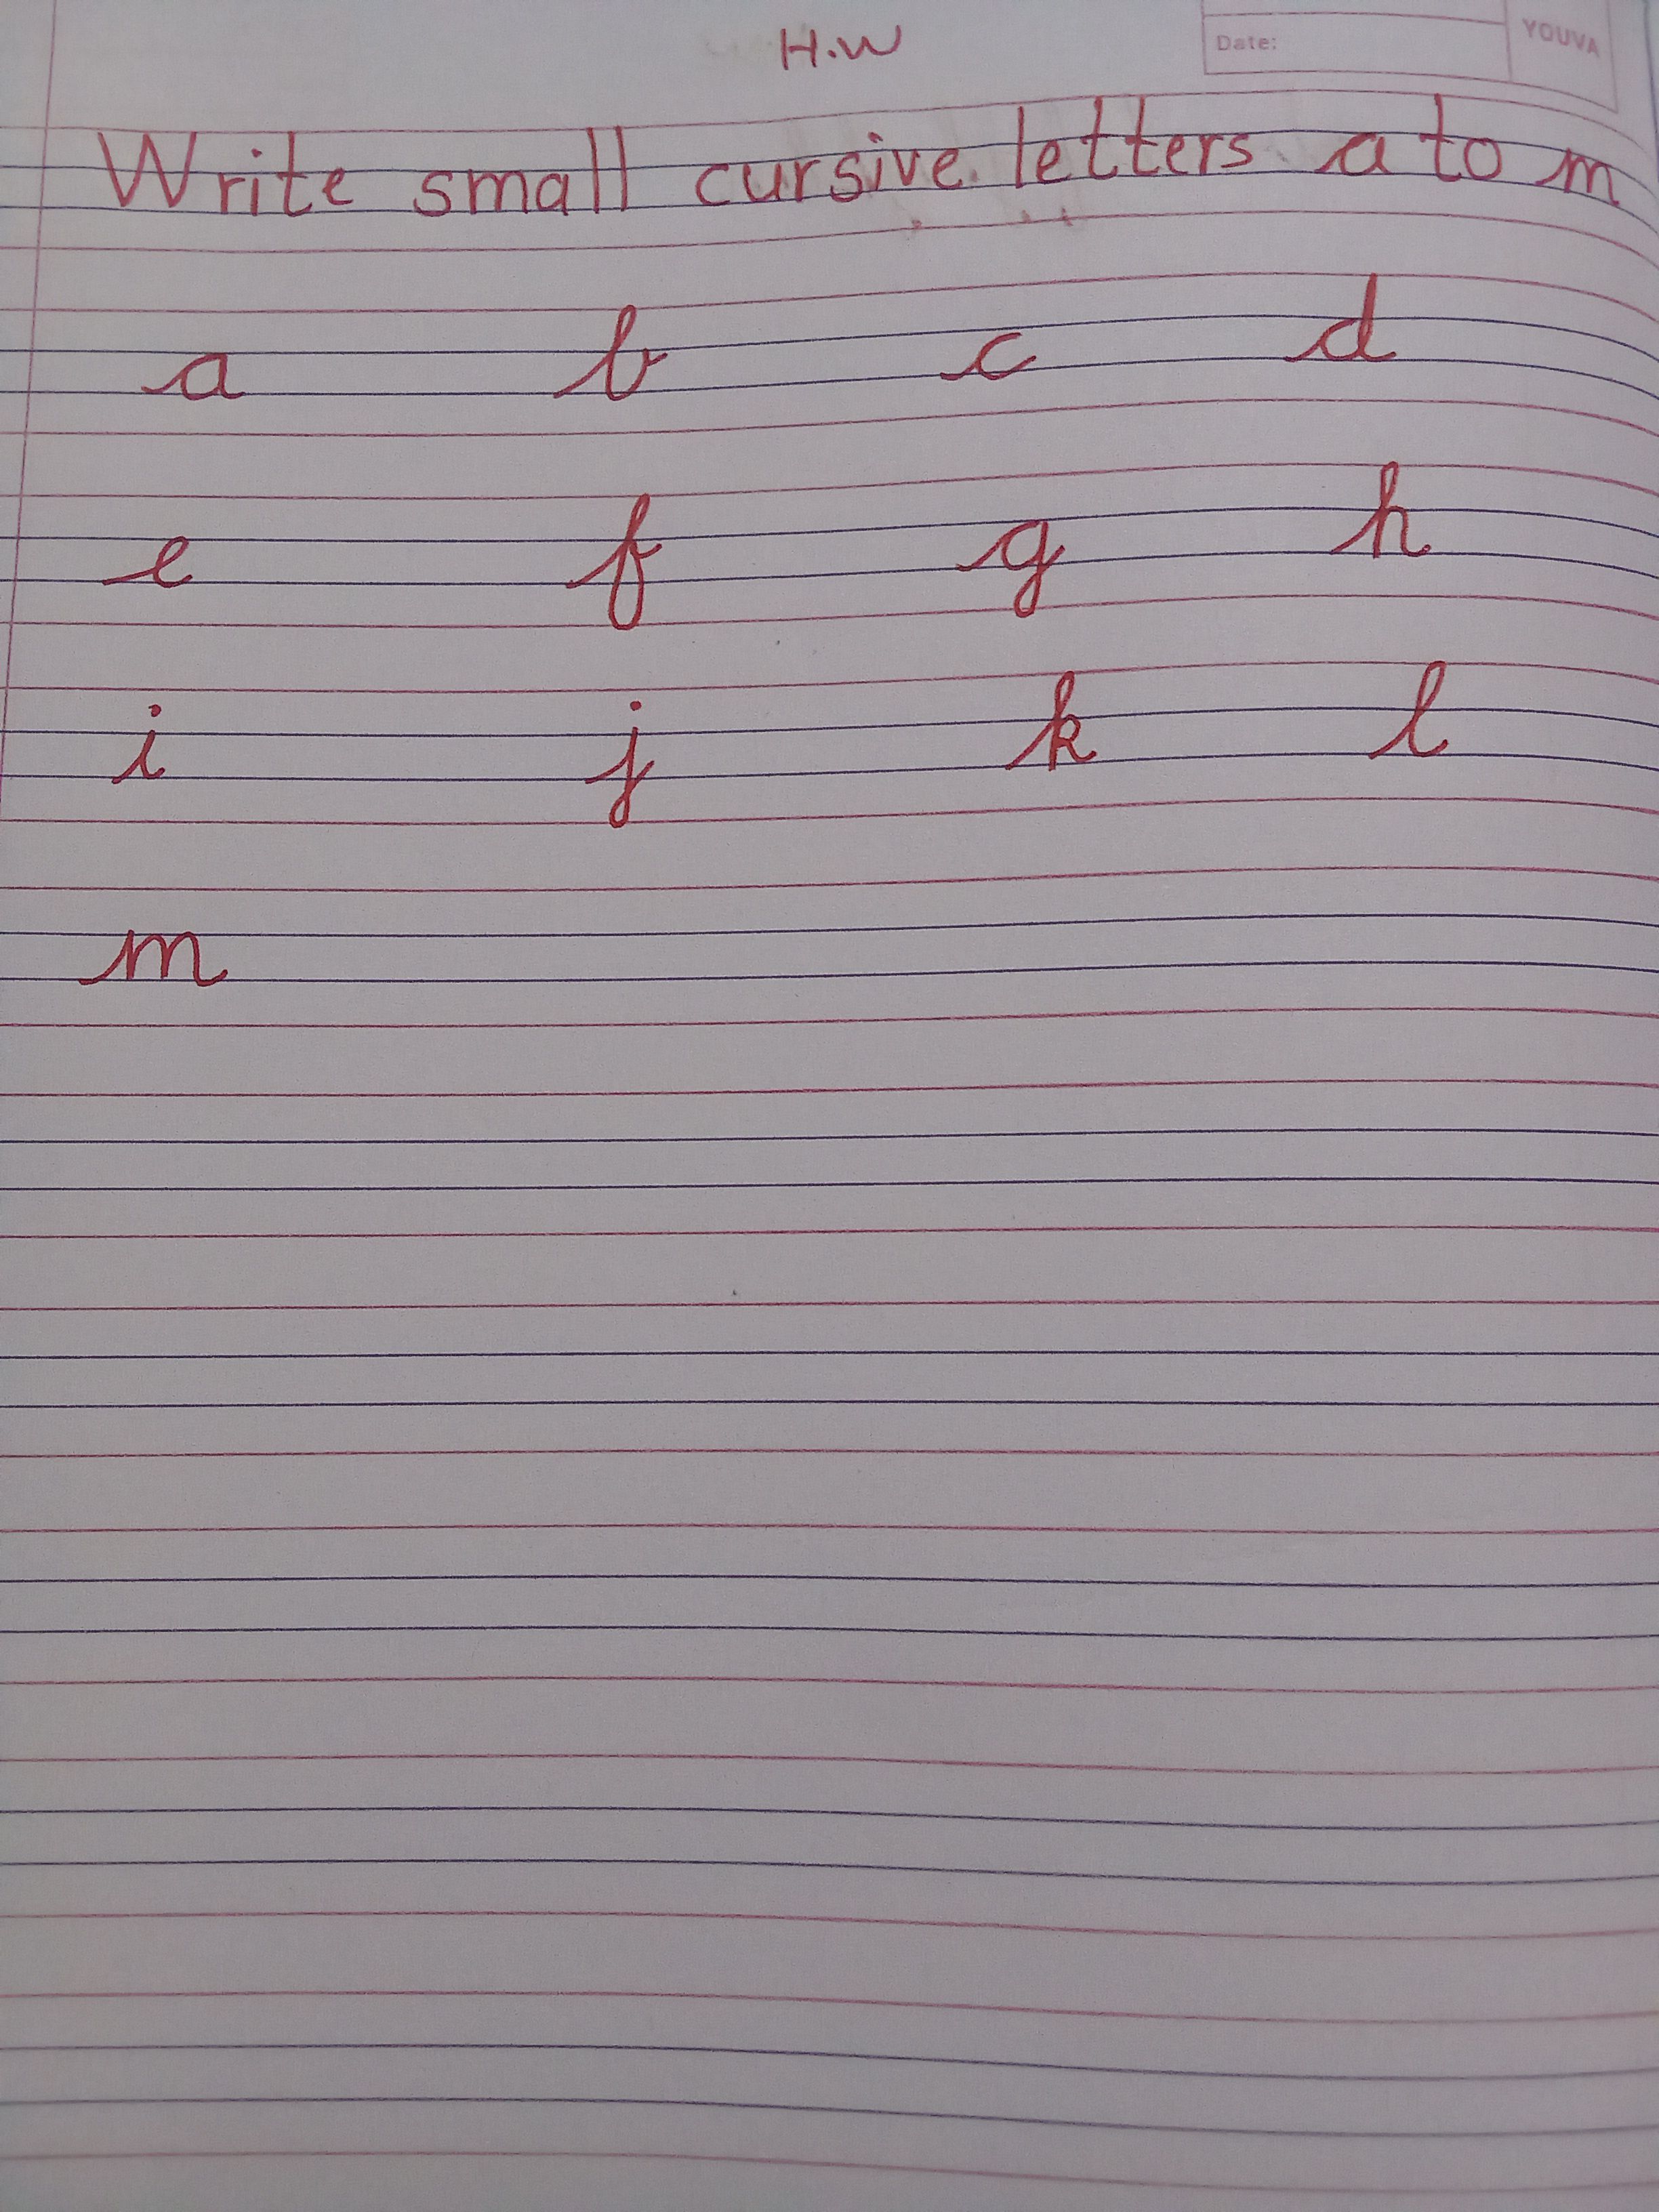 H.W
Date:
YOUVA
Write small cursive letters a to m
a b c d
e f g h
i j k l
m